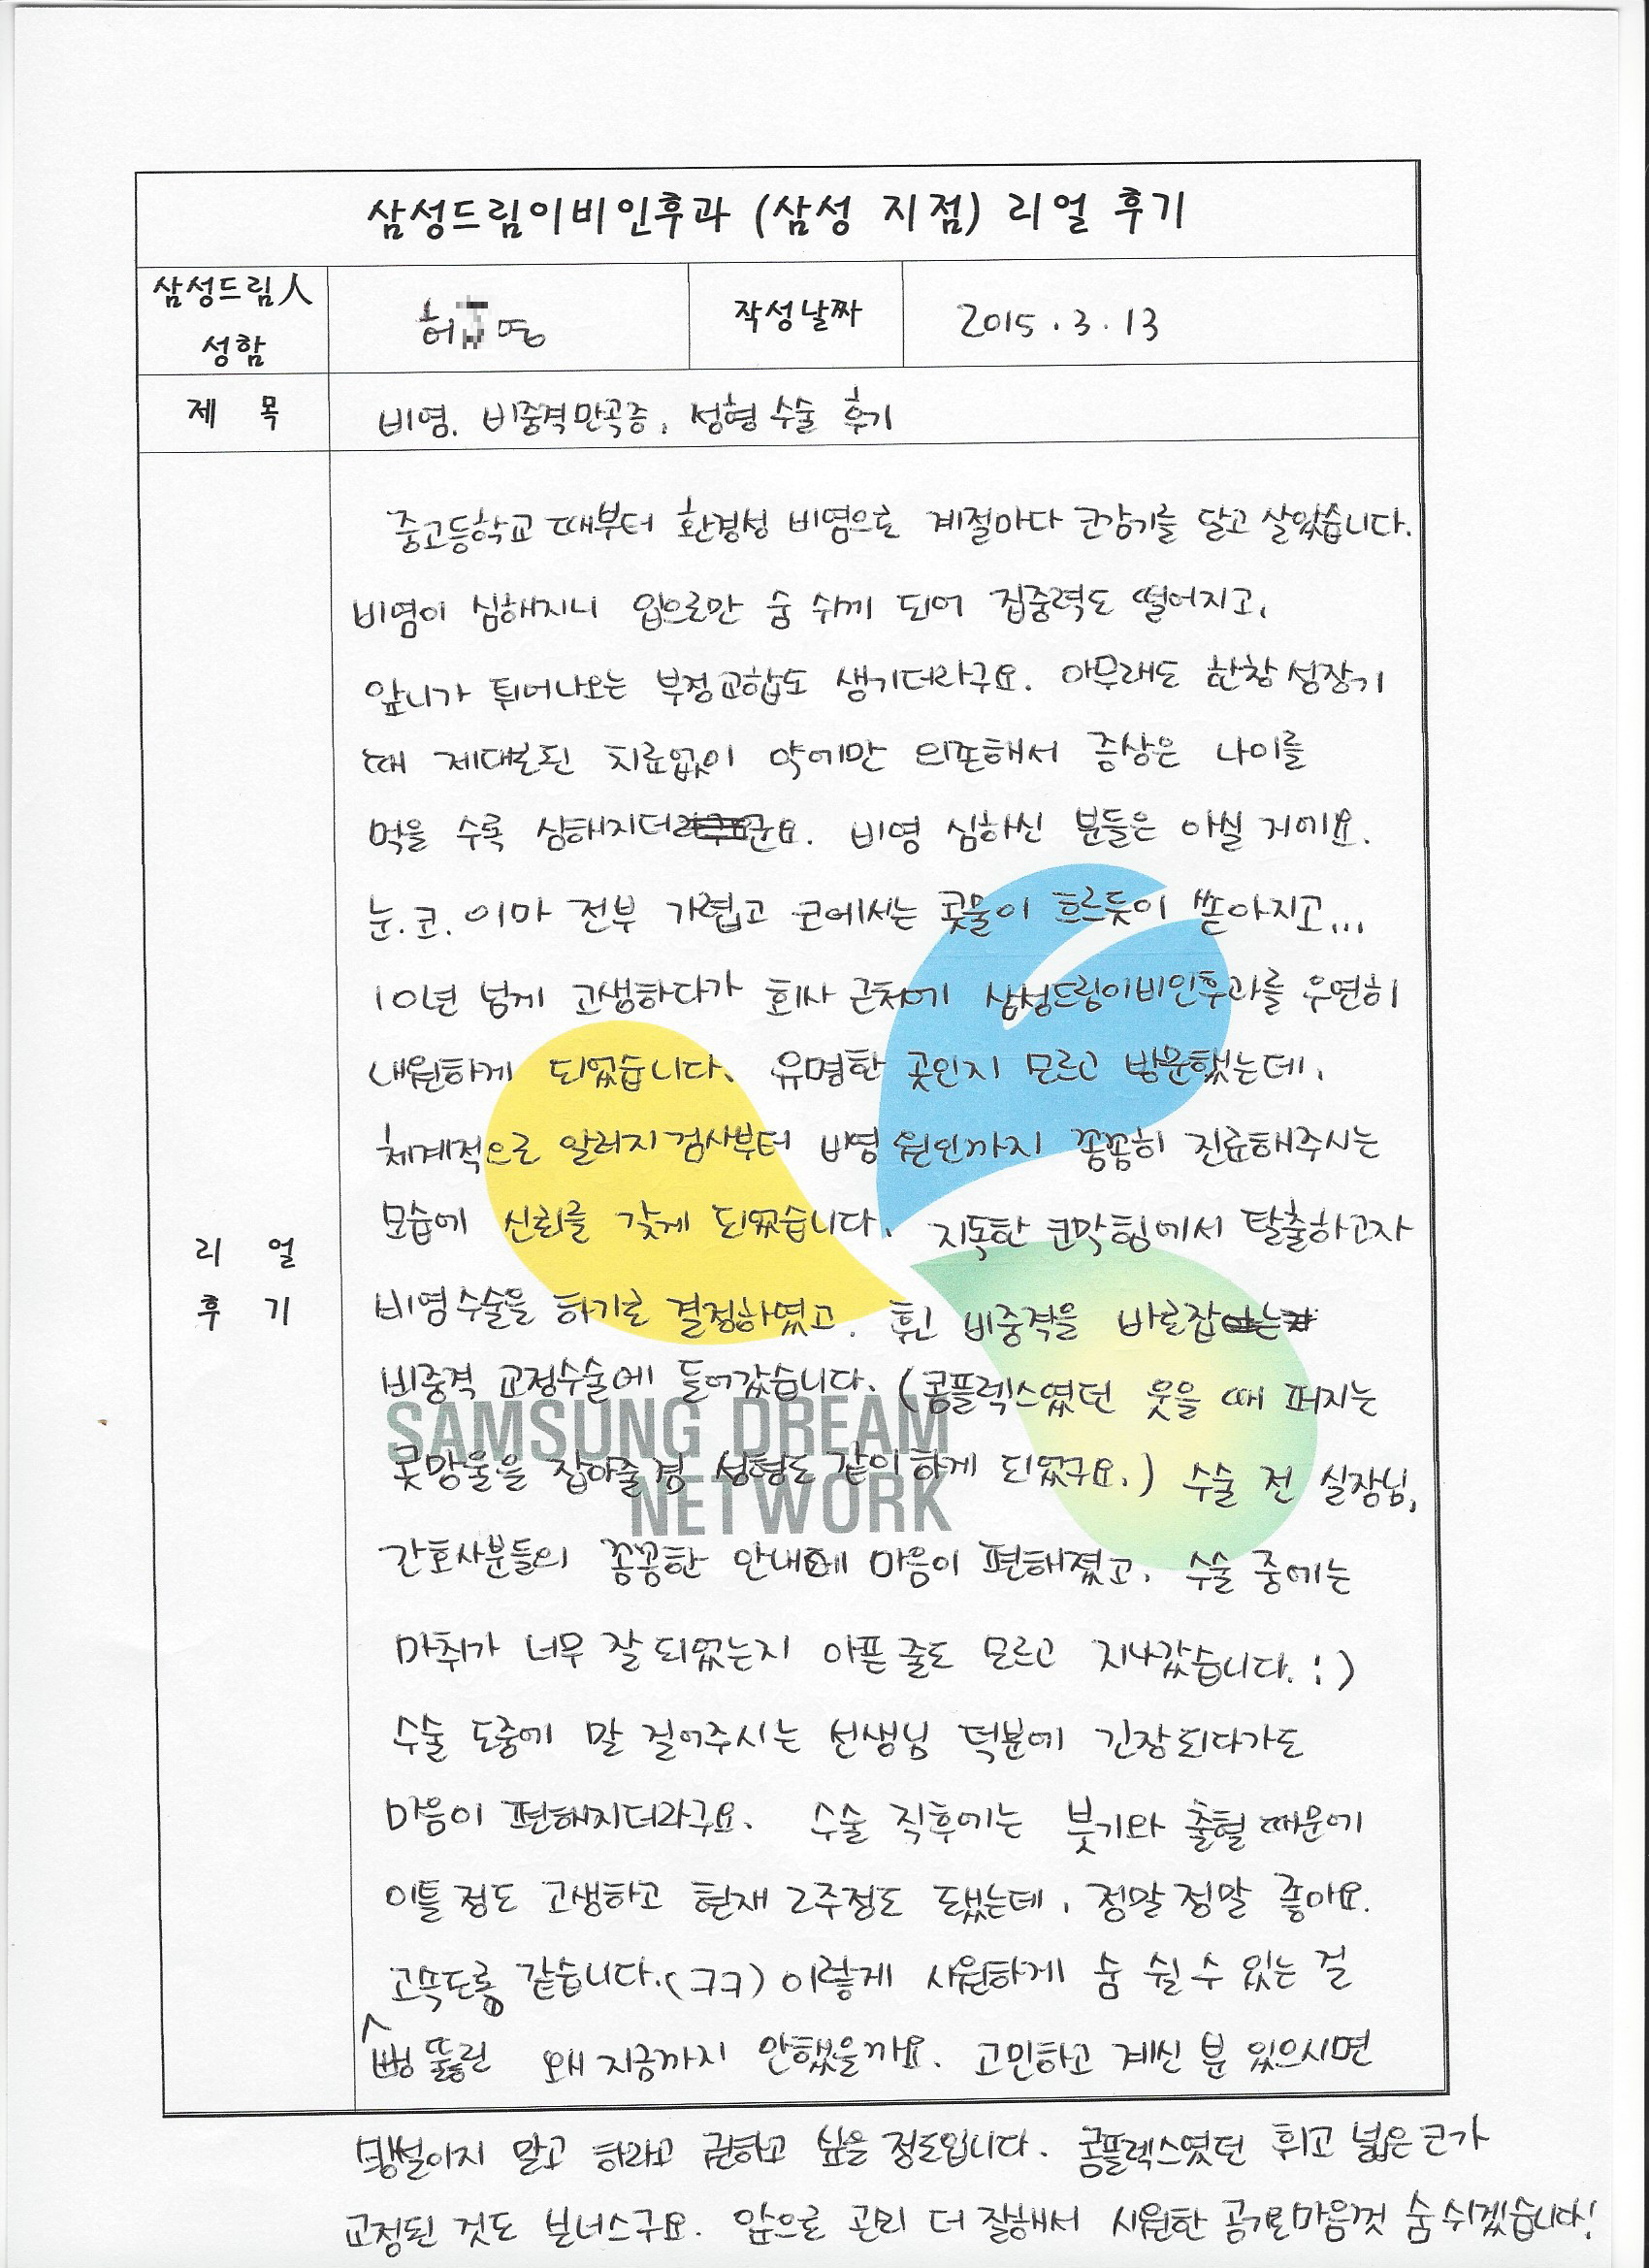 삼성드림이비인후과 (삼성 지점) 리얼 후기
삼성드림人
성함
허 영
작성날짜
2015.3.13
제 목
비염. 비중격만곡증, 성형수술 후기
중고등학교 때부터 환경성 비염으로 계절마다 코감기를 달고 살았습니다.
비염이 심해지니 입으로만 숨 쉬게 되어 집중력도 떨어지고,
앞니가 튀어나오는 부정교합도 생기더라구요. 아무래도 한창 성장기
때 제대로된 치료없이 약에만 의존해서 증상은 나이를
먹을 수록 심해지더군요. 비염 심하신 분들은 아실 거에요.
눈.코.이마 전부 가렵고 코에서는 콧물이 흐르듯이 쏟아지고...
10년 넘게 고생하다가 회사 근처에 삼성드림이비인후과를 우연히
내원하게 되었습니다. 유명한 곳인지 모르고 방문했는데,
체계적으로 알러지검사부터 비염 원인까지 꼼꼼히 진료해주시는
모습에 신뢰를 갖게 되었습니다. 지독한 코막힘에서 탈출하고자
비염수술을 하기로 결정하였고, 휜 비중격을 바로잡는
비중격 교정수술에 들어갔습니다. (콤플렉스였던 웃을 때 퍼지는
콧망울을 잡아줄 겸 성형도 같이하게 되었구요.) 수술 전 실장님,
간호사분들의 꼼꼼한 안내에 마음이 편해졌고, 수술 중에는
마취가 너무 잘 되었는지 아픈 줄도 모르고 지나갔습니다. :)
수술 도중에 말 걸어주시는 선생님 덕분에 긴장되다가도
마음이 편해지더라구요. 수술 직후에는 붓기와 출혈 때문에
이틀 정도 고생하고 현재 2주정도 됐는데, 정말정말 좋아요.
고속도로 같습니다.(ㅋㅋ) 이렇게 시원하게 숨 쉴 수 있는 걸
^뻥 뚫린 왜 지금까지 안했을까요. 고민하고 계신 분 있으시면
리 얼
후 기
망설이지 말고 하라고 권하고 싶을 정도입니다. 콤플렉스였던 휘고 넓은 코가
교정된 것도 보너스구요. 앞으로 관리 더 잘해서 시원한 공기로 마음껏 숨쉬겠습니다!
SAMSUNG DREAM
NETWORK